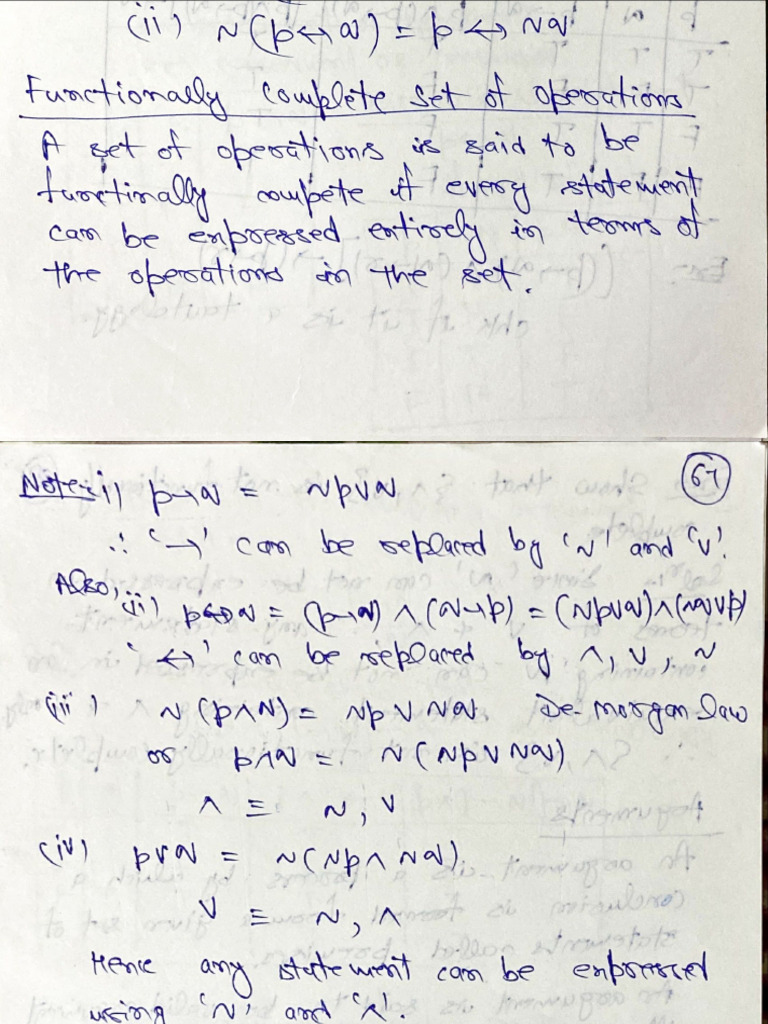 (ii) ~(p↔q) = p ↔ ~q
Functionally complete set of operations
A set of operations is said to be
functinally compete if every statement
can be expressed entirely in terms of
the operations in the set.
Note:- i) p→q = ~p∨q
67
∴ '→' can be replaced by '~' and '∨'.
Also, (ii) p↔q = (p→q) ∧ (q→p) = (~p∨q)∧(~q∨p)
'↔' can be replaced by ∧, ∨, ~
(iii) ~(p∧q) = ~p ∨ ~q. De-morgan law
or p∧q = ~(~p∨~q)
∧ ≡ ~, ∨
(iv) p∨q = ~(~p∧ ~q)
∨ ≡ ~, ∧
Hence any statement can be expressed
using '~' and '∧'.